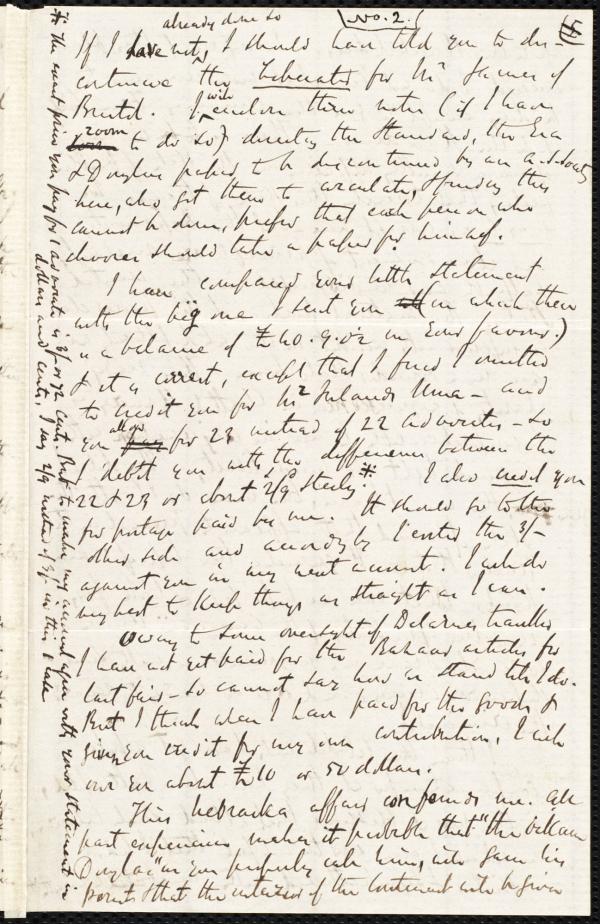 No. 2.
5
already done so
If I have not, I should have told you to dis-
continue the Liberator for Mr James of
Bristol. I will enclose three notes (if I have
room to do so) directing the Standard, the Era
& Douglass paper to be discontinued by an
here, who get them to circulate,
cannot be done, prefer that each person who
chooses should take a paper for himself.
I have compared your little statement
with the big one I sent you (in which there
is a balance of £40.9.02 in your favour.)
& it is correct, except that I find I omitted
to credit you for Mr Irelands Una - and
you allow for 23 instead of 22 advocates - so
I debit you with the difference between the
22 & 23 or about 2/9 Sterling *. I also credit you
for postage paid by me. It should go to the
other side and accordingly I enter the 3/-
against you in my next account. I will do
my best to keep things as straight as I can.
Owing to some oversight of
I have not yet paid for the Bazaar articles for
last fair - so cannot say how we stand till I do.
But I think when I have paid for the goods &
given you credit for my own contribution, I will
owe you about £10 or 50 dollars.
This Nebraska affair confounds me. All
past experience makes it probable that "the villain
Douglas" as you properly call him, will gain his
points & that the interior of the continent will be given
* the exact price you pay for 1 advocate is 3/- or 72 cents. But to make my account agree with your statement in
dollars and cents, I say 2/9 instead of 3/- in this 1 case